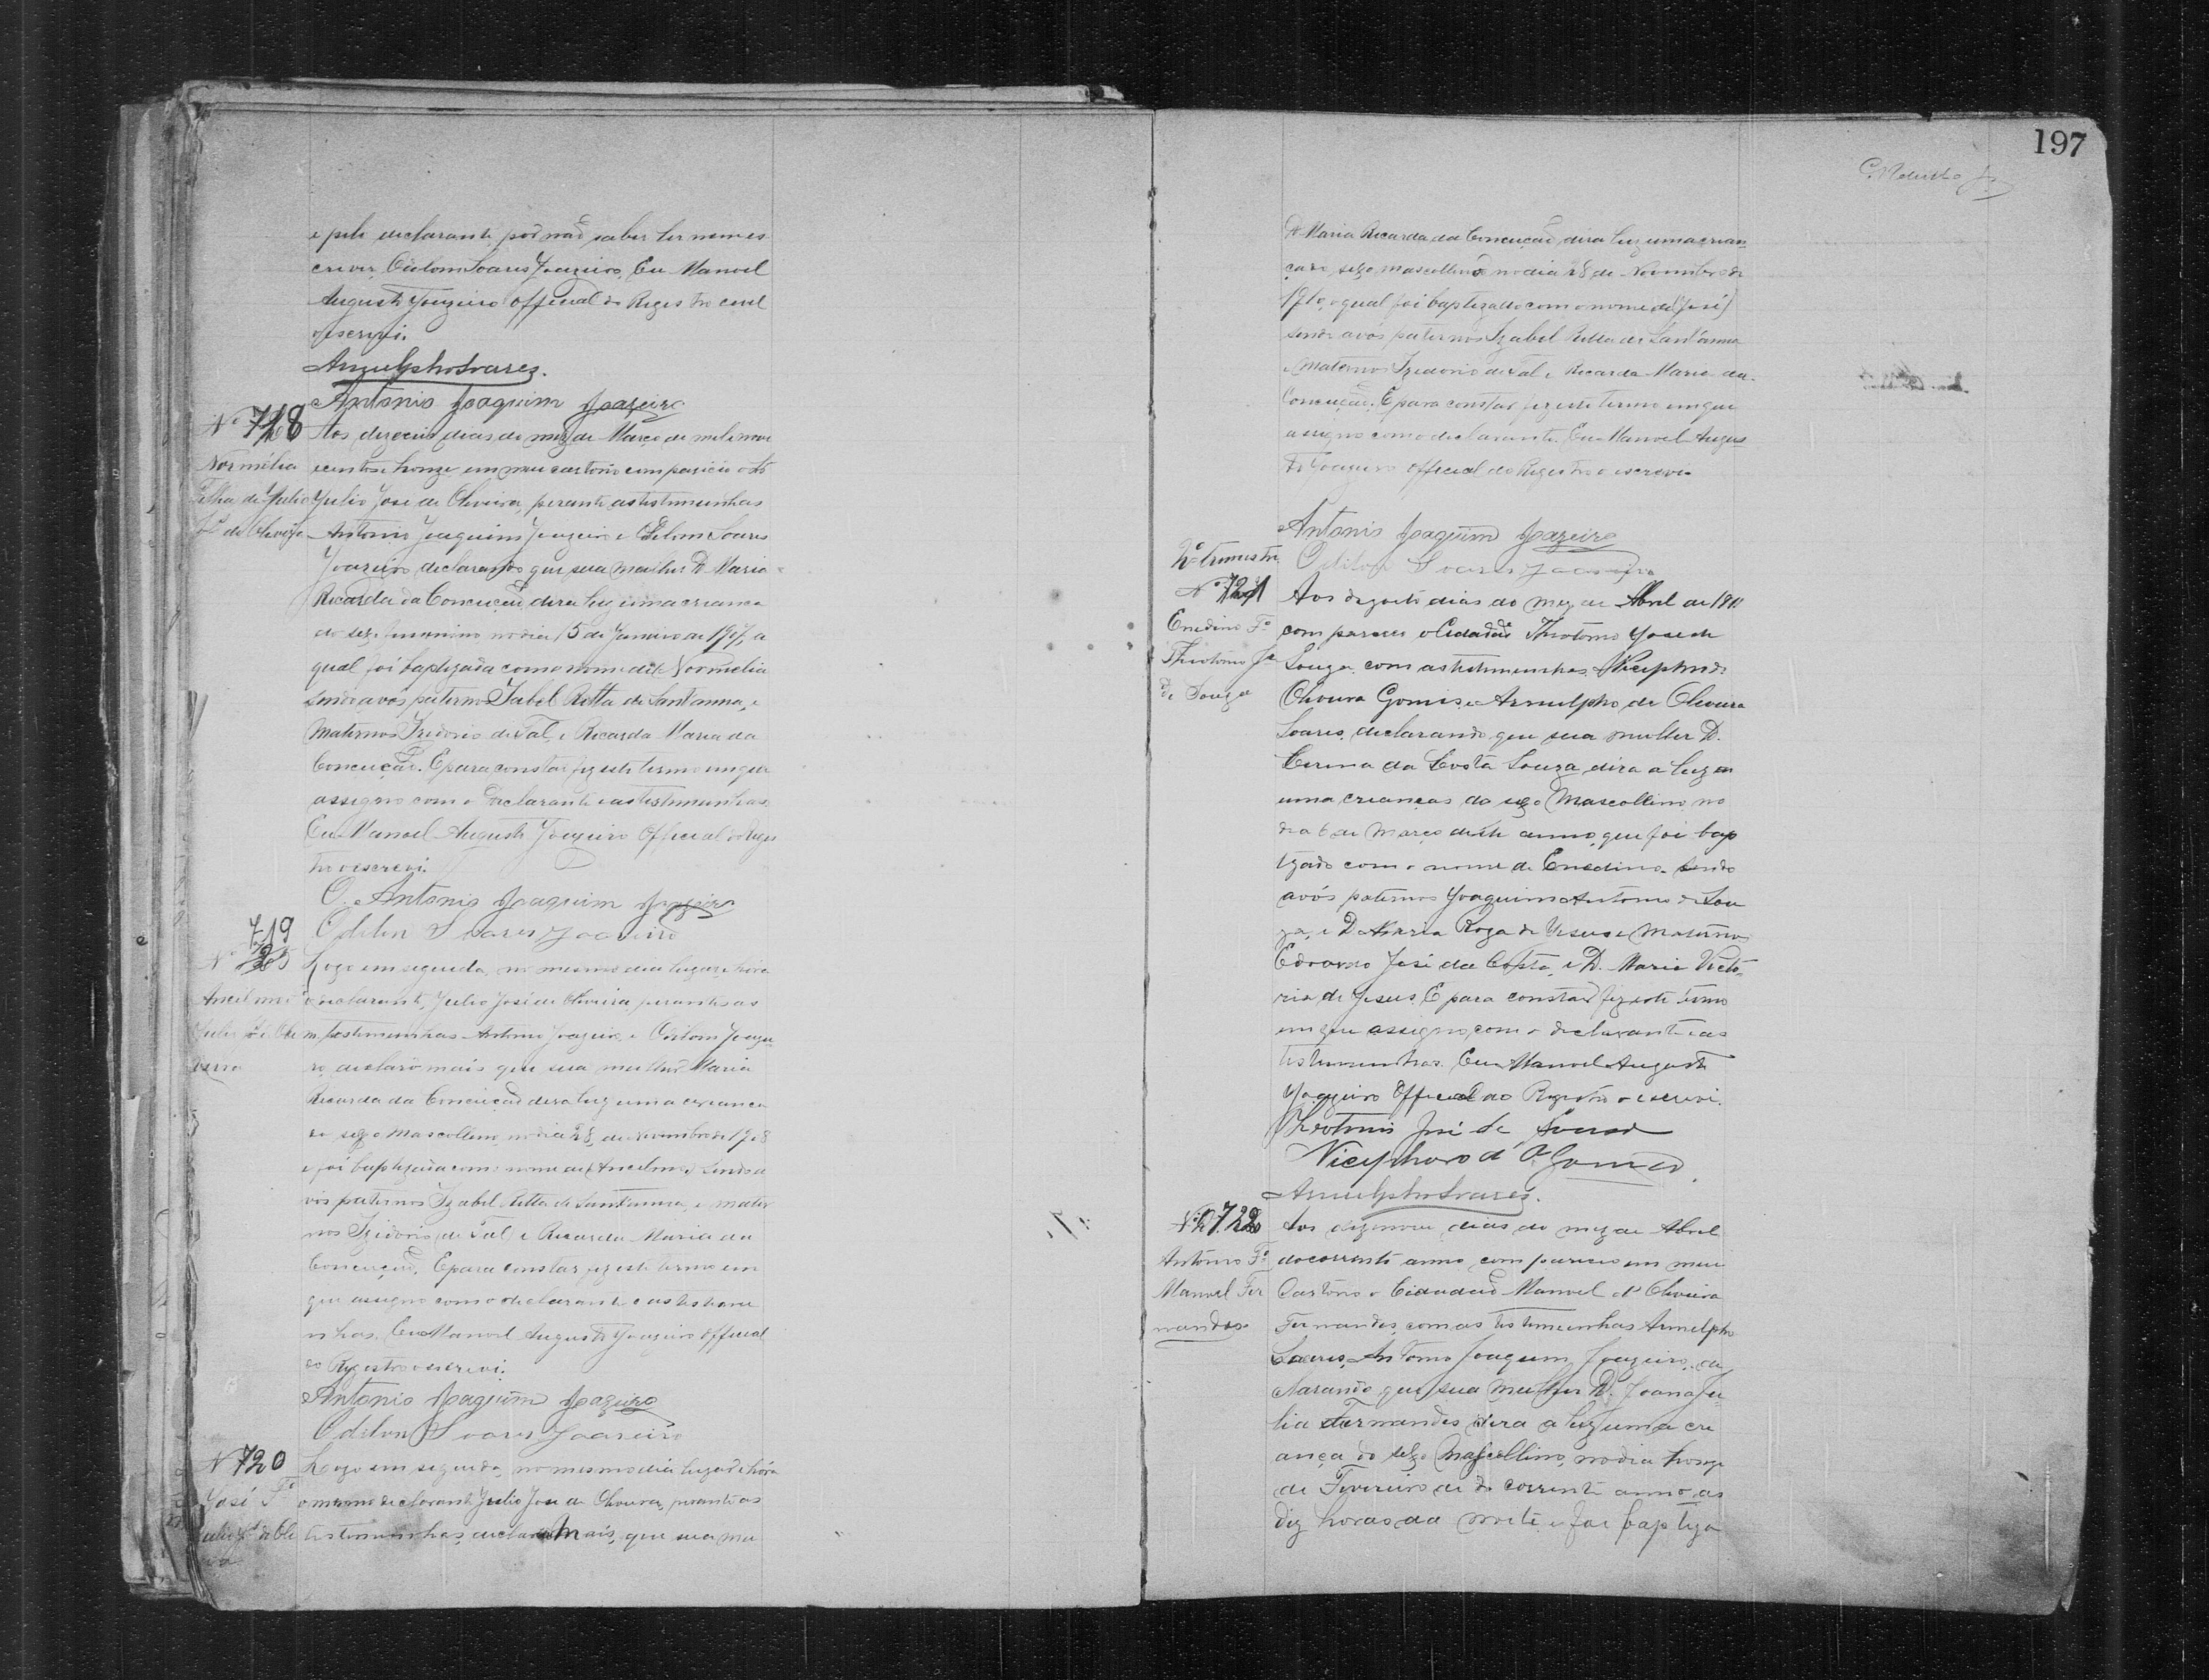 197
e pelo declarante por não saber ler nem es
crever Odilom Soares Joazeiro, Eu Manoel
Augusto Joazeiro Official do Registro civil
o escrevi.
Arnulpho Soares.
Antonio Joaquim Joazeiro
Nº 718
Normelia
Filha de Julio
Jé de Oliveira
Aos dezoito dias do mez de Março de mil e nove
centos e honze em meu cartorio compareceu o
Julio Jose de Oliveira, perante as testimunhas
Antonio Joaquim Joazeiro e Odilom Soares
Joazeiro, declarando que sua mulher D. Maria
Ricarda da Conceição dera luz uma creanca
do sexo femenino no dia 15 de Janeiro de 1907, a
qual foi baptizada com o nome de Normelia
sendo avós paternos Isabel Ritta de Sant'anna, e
Maternos Izidorio de Tal, e Ricarda Maria da
Conceição. E para constar fiz este termo em que
assigno com o declarante e as testimunhas.
Eu Manoel Augusto Joazeiro Official do Regis
tro o escrevi.
O. Antonio Joaquim Joazeiro
Odilon Soares Joazeiro
719
Nº
Ancelmo
Julio Jé de Oli
veira
Logo em seguida, no mesmo dia lugar e hora
o declarante, Julio José de Oliveira, perante as
m. testimunhas Antonio Joazeiro, e Odilom Joazei
ro, declaro mais que sua mulher Maria
Ricarda da Conceição dera luz uma creanca
do sexo Mascollino, no dia 28, de Novembro de 1908
e foi baptizada com o nome de Ancelmo, sendo a
vós paternos Izabel Ritta de Sant'anna, e mater
nos Izidorio, de Tal e Ricarda Maria da
Conceição. E para constar fiz este termo em
que assigno com o declarante e as testimu
nhas. Eu Manoel Augusto Joazeiro Official
do Registro o escrevi.
Antonio Joaquim Joazeiro
Odilon Soares Joazeiro
N 720
José Fº
Julio Jé de Oli
veira
Logo em seguida, no mesmo dia lugar e hora
o mesmo declarante Julio Jose de Oliveira, perante as
testimunhas, declara Mais, que sua mu
D. Maria Ricarda da Conceição, dera luz uma crian
ça do sexo mascollino no dia 28 de Novembro de
1910, o qual foi baptizado com o nome de (José)
sendo avós paternos Izabel Ritta de Sant'anna
e Maternos Izidorio de Tal e Ricarda Maria da
Conceição. E para constar fiz este termo em que
assigno com o declarante. Eu Manoel Augus
to Joazeiro Official do Registro o escrevi.
Antonio Joaquim Joazeiro
Odilon Soares Joazeiro
2º trimestre
Nº 721
Enedino Fº
Thiotonio Jé
de Souza
Aos dezoito dias do mez de Abril de 1911
compareceu o Cidadão Thiotonio Jose de
Souza com as testimunhas Nicephoro de
Oliveira Gomes, e Arnulpho de Oliveira
Soares, declarando, que sua mulher D.
da Costa Souza dera a luz
uma creanças do sexo Mascollino no
dia 6 de Março deste anno, que foi bap
tizado com o nome de Enedino. Sendo
avós paternos Joaquim Antonio de Sou
za, e D. Maria Roza de Jesus e Maternos
Edoardo José da Costa, e D. Maria Victo-
ria de Jesus. E para constar fiz este termo
em que assigno, com o declarante e as
testimunhas. Eu Manoel Augusto
Joazeiro Official do Registro o escrevi.
Theotonio José de Souza
Nicephoro d'O. Gomes.
Arnulpho Soares.
Nº 722
Antonio Fº
Manoel Fer
nandes
Aos dezenove dias do mez de Abril
do corrente anno compareceu em meu
Cartorio o Cidadão Manoel d'Oliveira
Fernandes, com as testimunhas Arnulpho
Soares, Antonio Joaquim Joazeiro, de
clarando que sua mulher D. Joana Ju
lia Fernandes dera a luz uma cre
ança do sexo Mascollino, no dia honze
de Fevereiro de do corrente anno, as
dez horas da noite, e foi baptiza